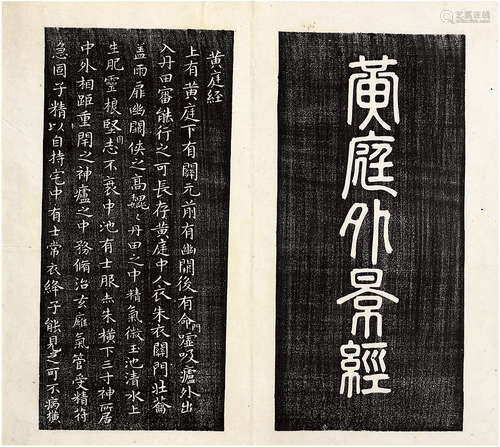 艺狐在线
黃庭外景經
黃庭経
上有黃庭下有關元前有幽闕後有命門噓吸廬外出
入丹田審能行之可長存黃庭中人衣朱衣關門壯籥
蓋兩扉幽闕俠之高巍巍丹田之中精氣微玉池清水上
生肥靈根堅志不衰中池有士服赤朱橫下三寸神所居
中外相距重閉之神廬之中務脩治玄廱氣管受精符
急固子精以自持宅中有士常衣絳子能見之可不病橫